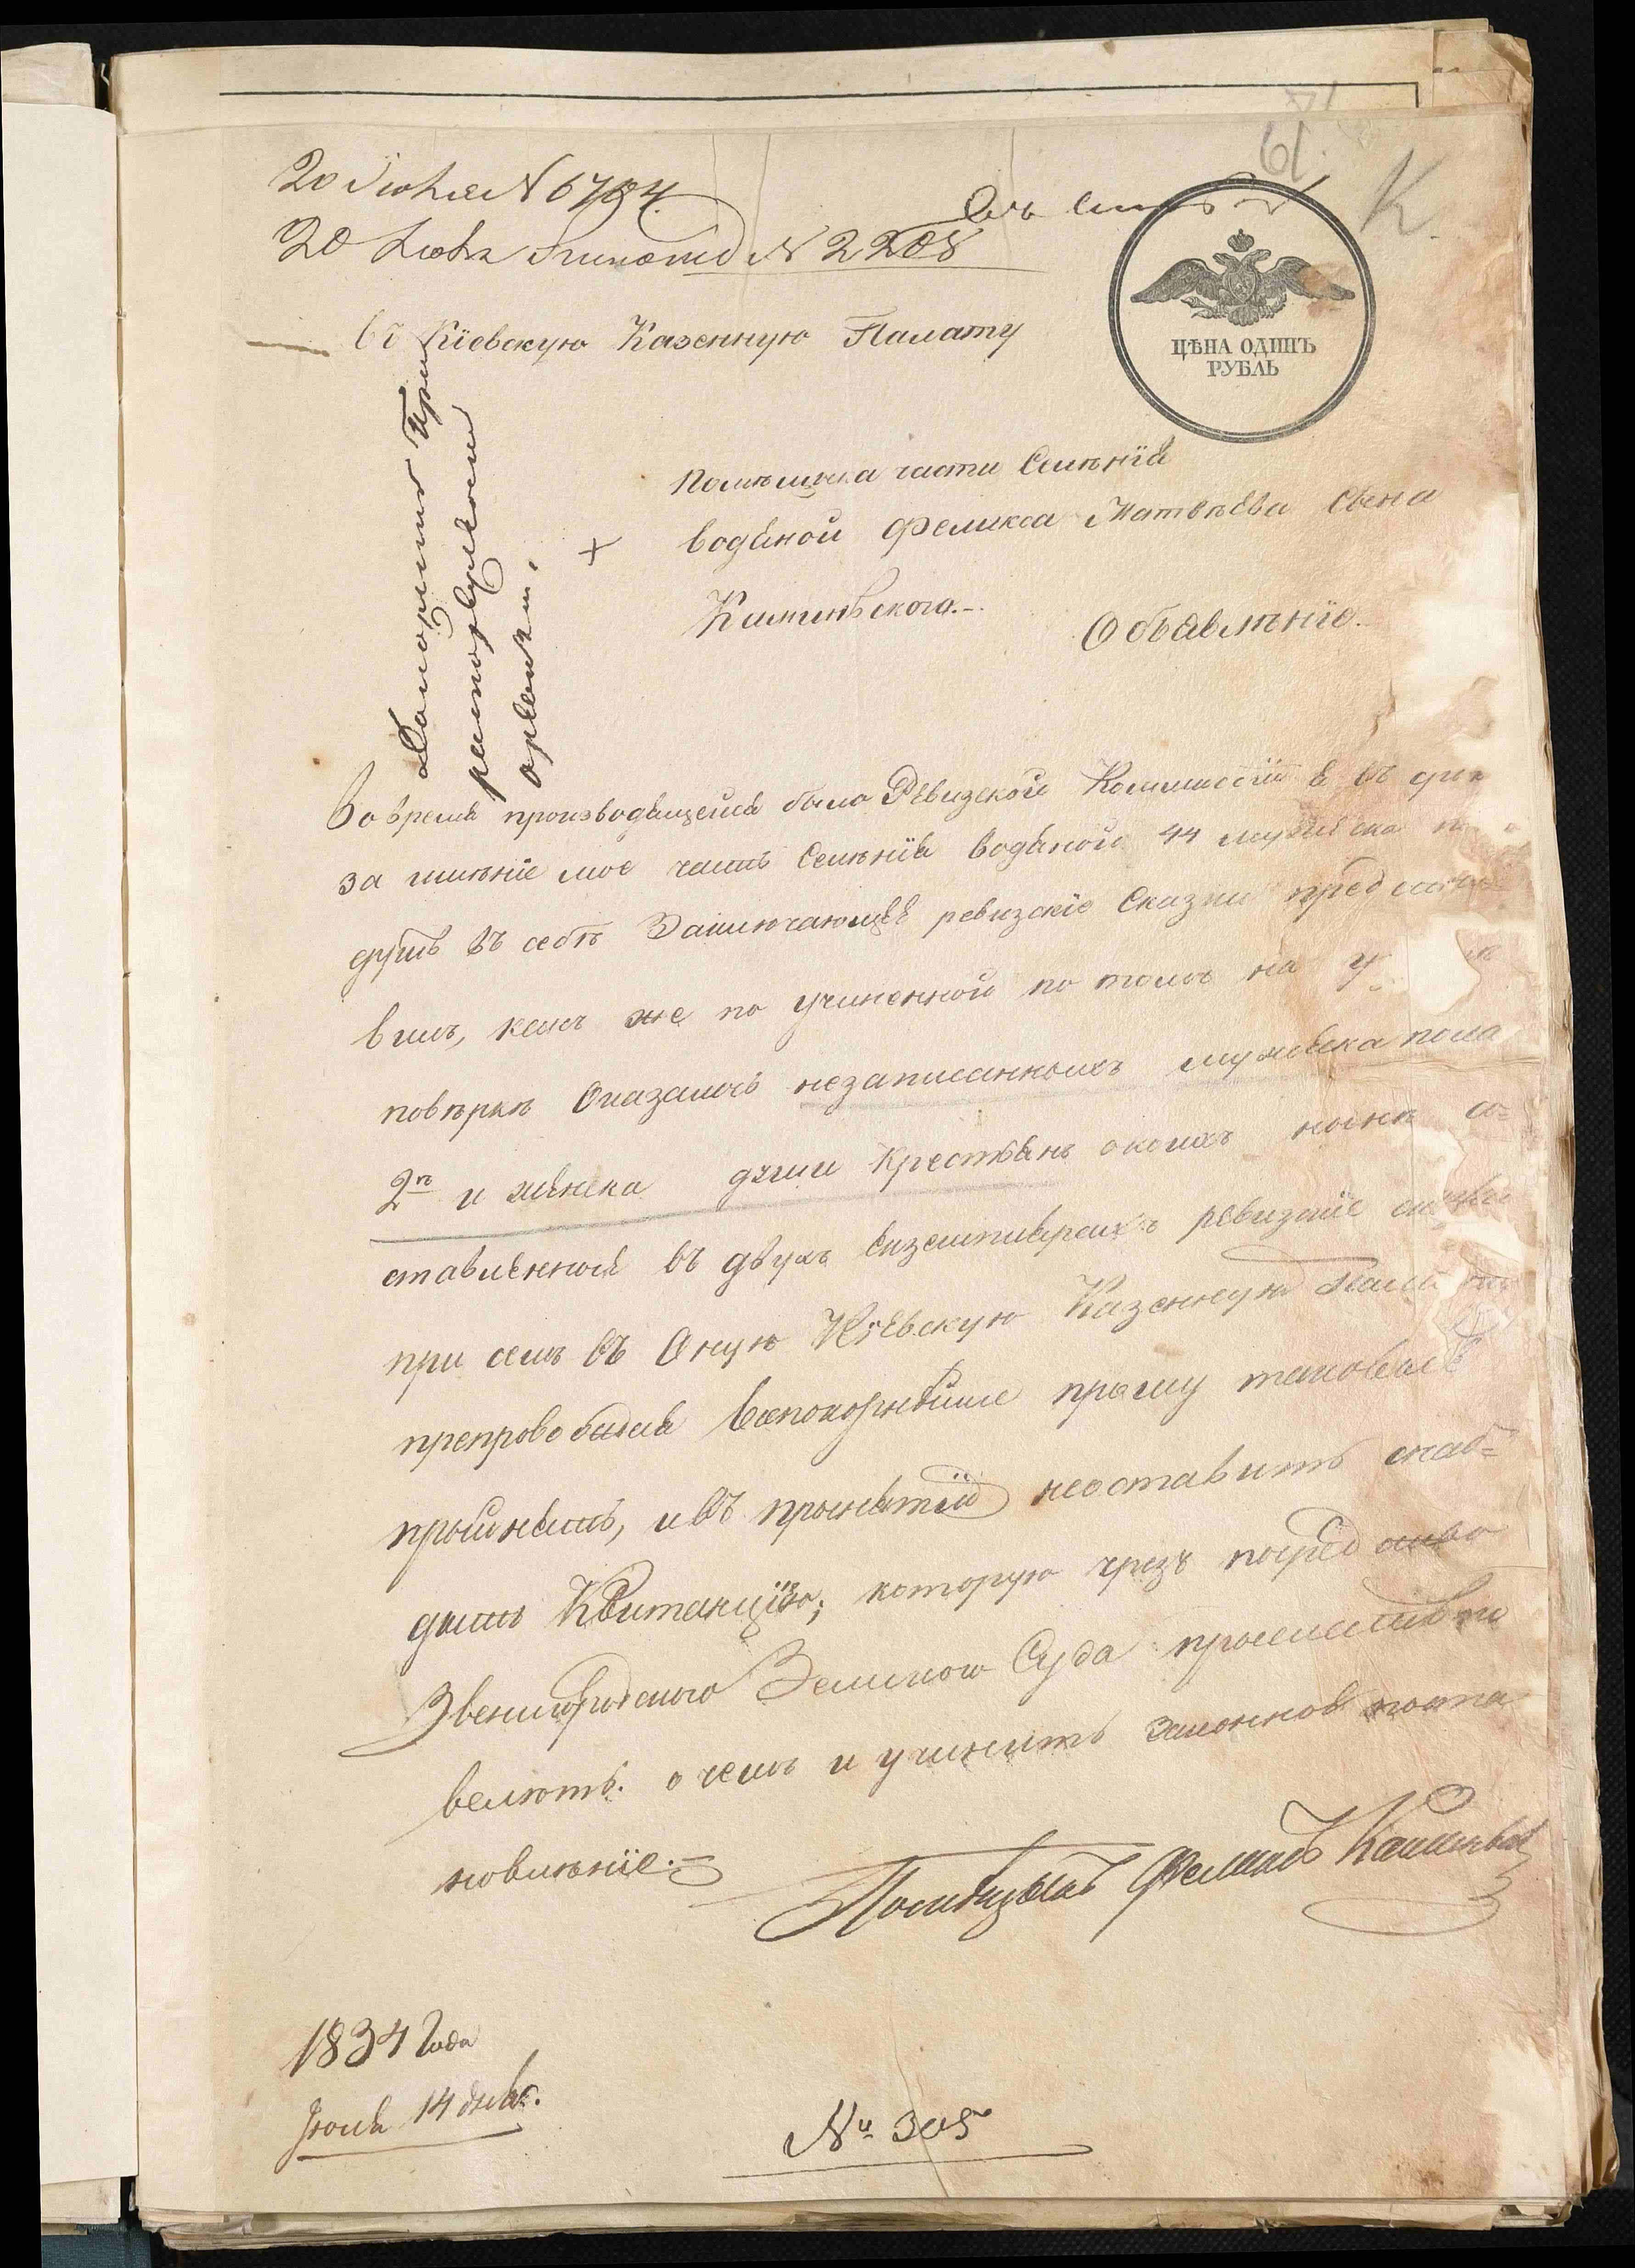 20 Июня N 6784.
20 Июня N 2208
Въ Кіевскую Казенную Палату
ЦѢНА ОДИНЪ
РУБЛЬ
К.
19
помѣщика части Селѣнія
водяной Феликса Матвѣева Сына
Объявлѣніе.
Во время производящейся было Ревизской Коммиссіи въ
за имѣніе мое часть Селѣнія водяной 44 мужеска
душъ въ себѣ Заключающее ревизскіе Сказки предста
вилъ, какъ же по учиненной по томъ на
повѣркѣ Оказалось незаписанныхъ мужеска пола
2 и женска души Крестьянъ окоихъ нынѣ со=
ставленныя въ двухъ Екземплярахъ ревизскіе сказки
при семъ въ Оную Кіевскую Казенную Палату
препровождая Всепокорнѣйше прошу таковые
принять, ивъ принятіи неоставить снаб=
дить Квитанціею; которую чрезъ посредство
Звенигородского Земского Суда
велѣть. о чемъ и учинить законное поста
новлѣніе.=
Помѣщикъ Феликсъ
1834 Года
Іюня 14 дня.
№ 305